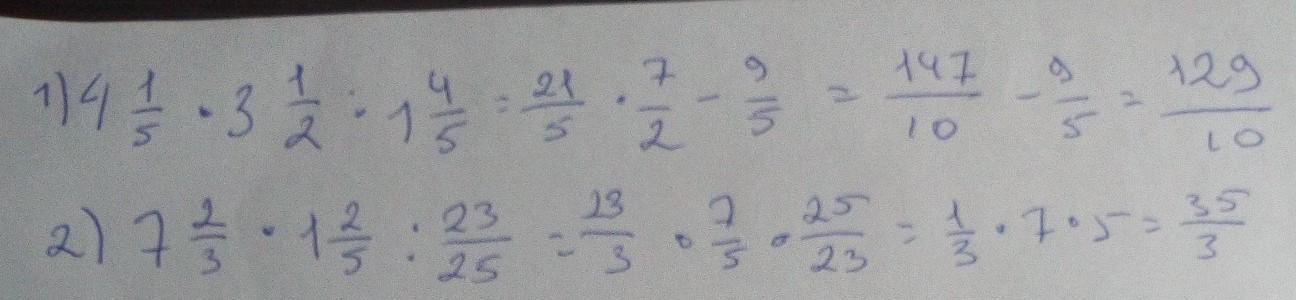 1) 4 1/5 · 3 1/2 : 1 4/5 = 21/5 · 7/2 - 9/5 = 147/10 - 9/5 = 129/10
2) 7 2/3 · 1 2/5 : 23/25 = 23/3 · 7/5 · 25/23 = 1/3 · 7 · 5 = 35/3